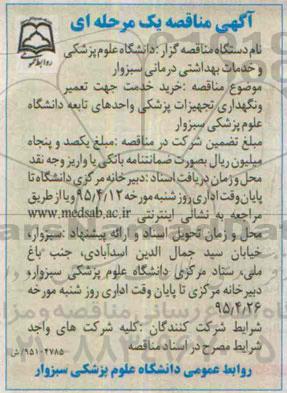 آگهی مناقصه یک مرحله ای
روابط عمومی
نام دستگاه مناقصه گزار :دانشگاه علوم پزشکی
و خدمات بهداشتی درمانی سبزوار
موضوع مناقصه :خرید خدمت جهت تعمیر
ونگهداری تجهیزات پزشکی واحدهای تابعه دانشگاه
علوم پزشکی سبزوار
مبلغ تضمین شرکت در مناقصه :مبلغ یکصد و پنجاه
میلیون ریال بصورت ضمانتنامه بانکی یا واریز وجه نقد
محل وزمان دریافت اسناد :دبیرخانه مرکزی دانشگاه تا
پایان وقت اداری روز شنبه مورخه ۹۵/۴/۱۲ ویا از طریق
مراجعه به نشانی اینترنتی www.medsab.ac.ir
محل و زمان تحویل اسناد و ارائه پیشنهاد :سبزوار،
خیابان سید جمال الدین اسدآبادی، جنب باغ
ملی، ستاد مرکزی دانشگاه علوم پزشکی سبزوار،
دبیرخانه مرکزی تا پایان وقت اداری روز شنبه مورخه
۹۵/۴/۲۶
شرایط شرکت کنندگان :کلیه شرکت های واجد
شرایط مصرح در اسناد مناقصه
۹۵۱۰۲۷۸۵/ش
روابط عمومی دانشگاه علوم پزشکی سبزوار